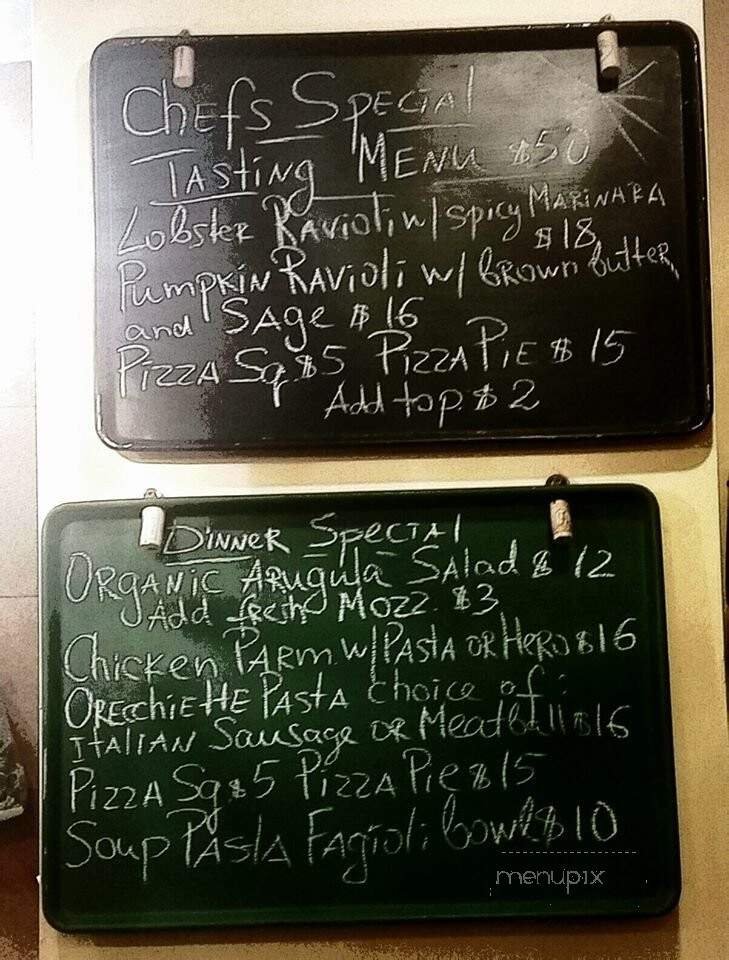 Chefs Special
Tasting Menu $50
Lobster Ravioli w/ spicy Marinara
$18
Pumpkin Ravioli w/ brown butter
and Sage $16
Pizza Sq. $5 Pizza Pie $15
Add top. $2
Dinner Special
Organic Arugula Salad $12
Add fresh Mozz. $3
Chicken Parm. w/ Pasta or Hero $16
Orecchiette Pasta choice of:
Italian Sausage or Meatball $16
Pizza Sq $5 Pizza Pie $15
Soup Pasta Fagioli bowl $10
menupix